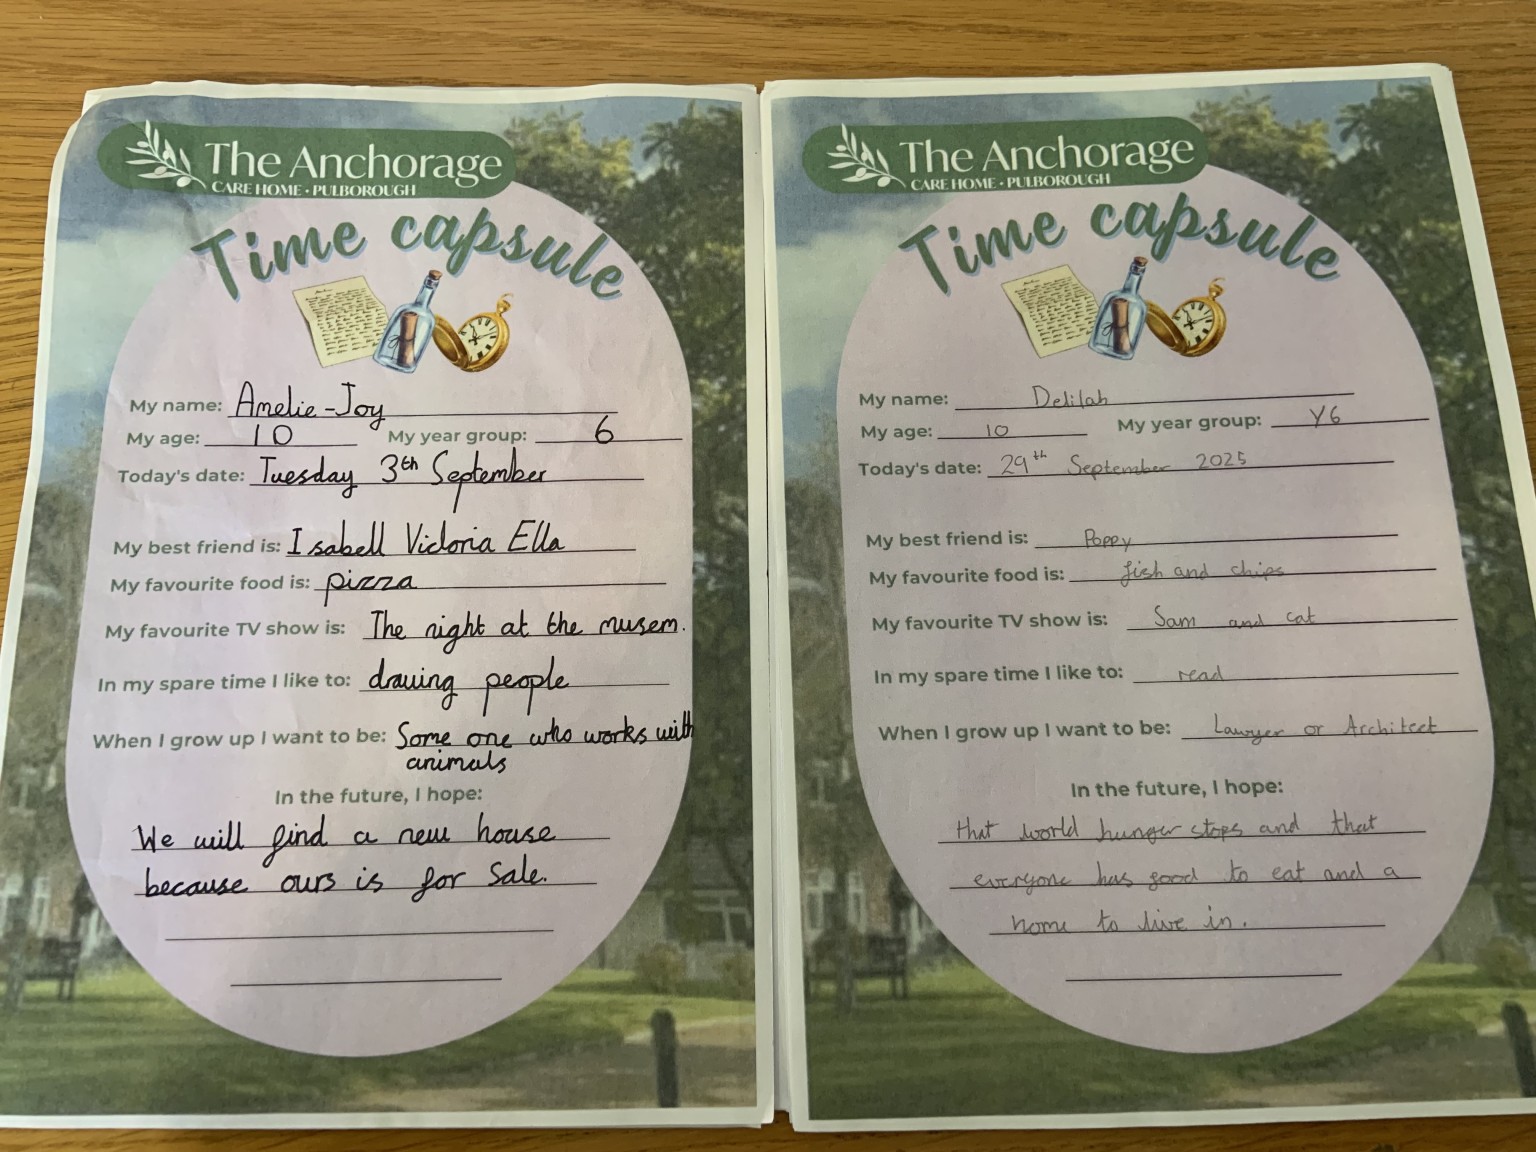 The Anchorage
CARE HOME • PULBOROUGH
Time capsule
My name: Amelie-Joy
My age: 10 My year group: 6
Today's date: Tuesday 3th September
My best friend is: Isabell Victoria Ella
My favourite food is: pizza
My favourite TV show is: The night at the musem.
In my spare time I like to: drawing people
When I grow up I want to be: Some one who works with
animals
In the future, I hope:
We will find a new house
because ours is for sale.
The Anchorage
CARE HOME • PULBOROUGH
Time capsule
My name: Delilah
My age: 10 My year group: Y6
Today's date: 29th September 2025
My best friend is: Poppy
My favourite food is: fish and chips
My favourite TV show is: Sam and cat
In my spare time I like to: read
When I grow up I want to be: Lawyer or Architect
In the future, I hope:
that world hunger stops and that
everyone has food to eat and a
home to live in.